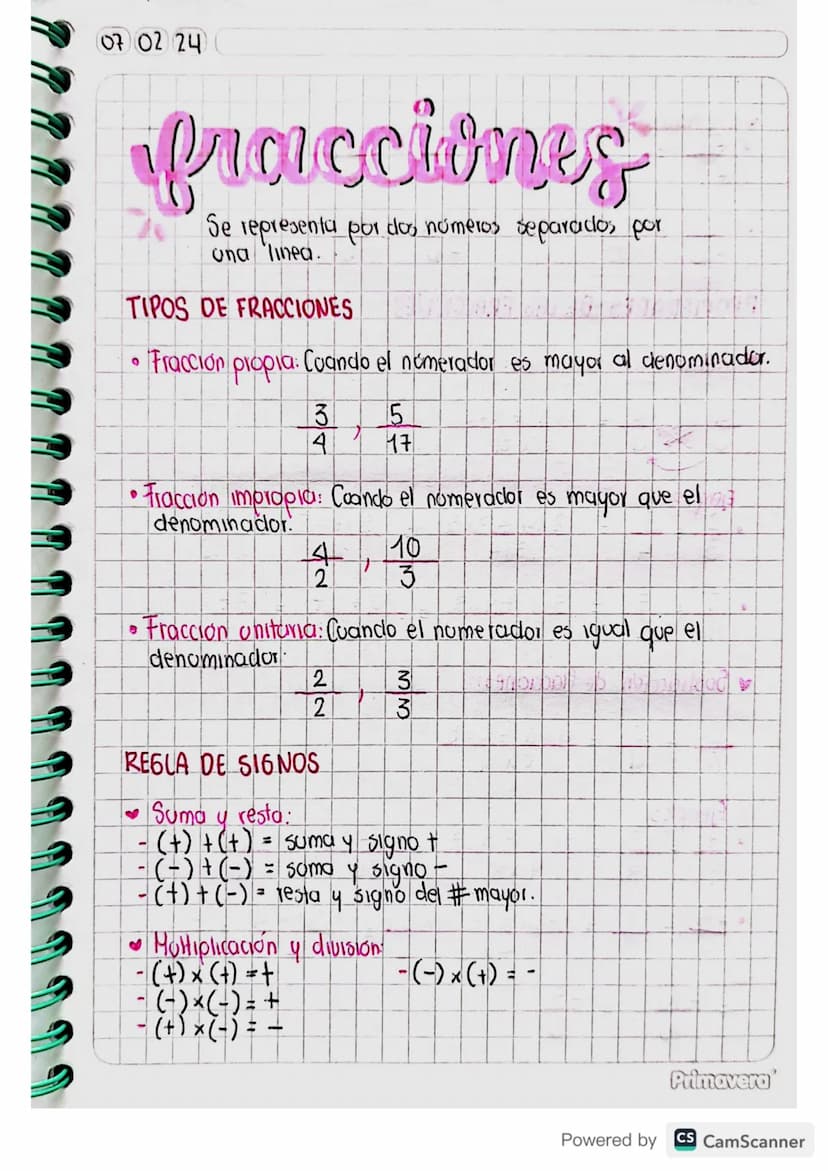 07 02 24
fracciones
Se representa por dos números separados por
una línea.
TIPOS DE FRACCIONES
• Fracción propia: Cuando el númerador es mayor al denominador.
3/4 , 5/17
• Fracción impropia: Cuando el númerador es mayor que el
denominador.
4/2 , 10/3
• Fracción unitaria: Cuando el numerador es igual que el
denominador.
2/2 , 3/3
REGLA DE SIGNOS
♥ Suma y resta:
- (+) + (+) = suma y signo +
- (-) + (-) = suma y signo -
- (+) + (-) = resta y signo del # mayor.
♥ Multiplicación y división:
- (+) x (+) = + - (-) x (+) = -
- (-) x (-) = +
- (+) x (-) = -
Primavera
Powered by CS CamScanner